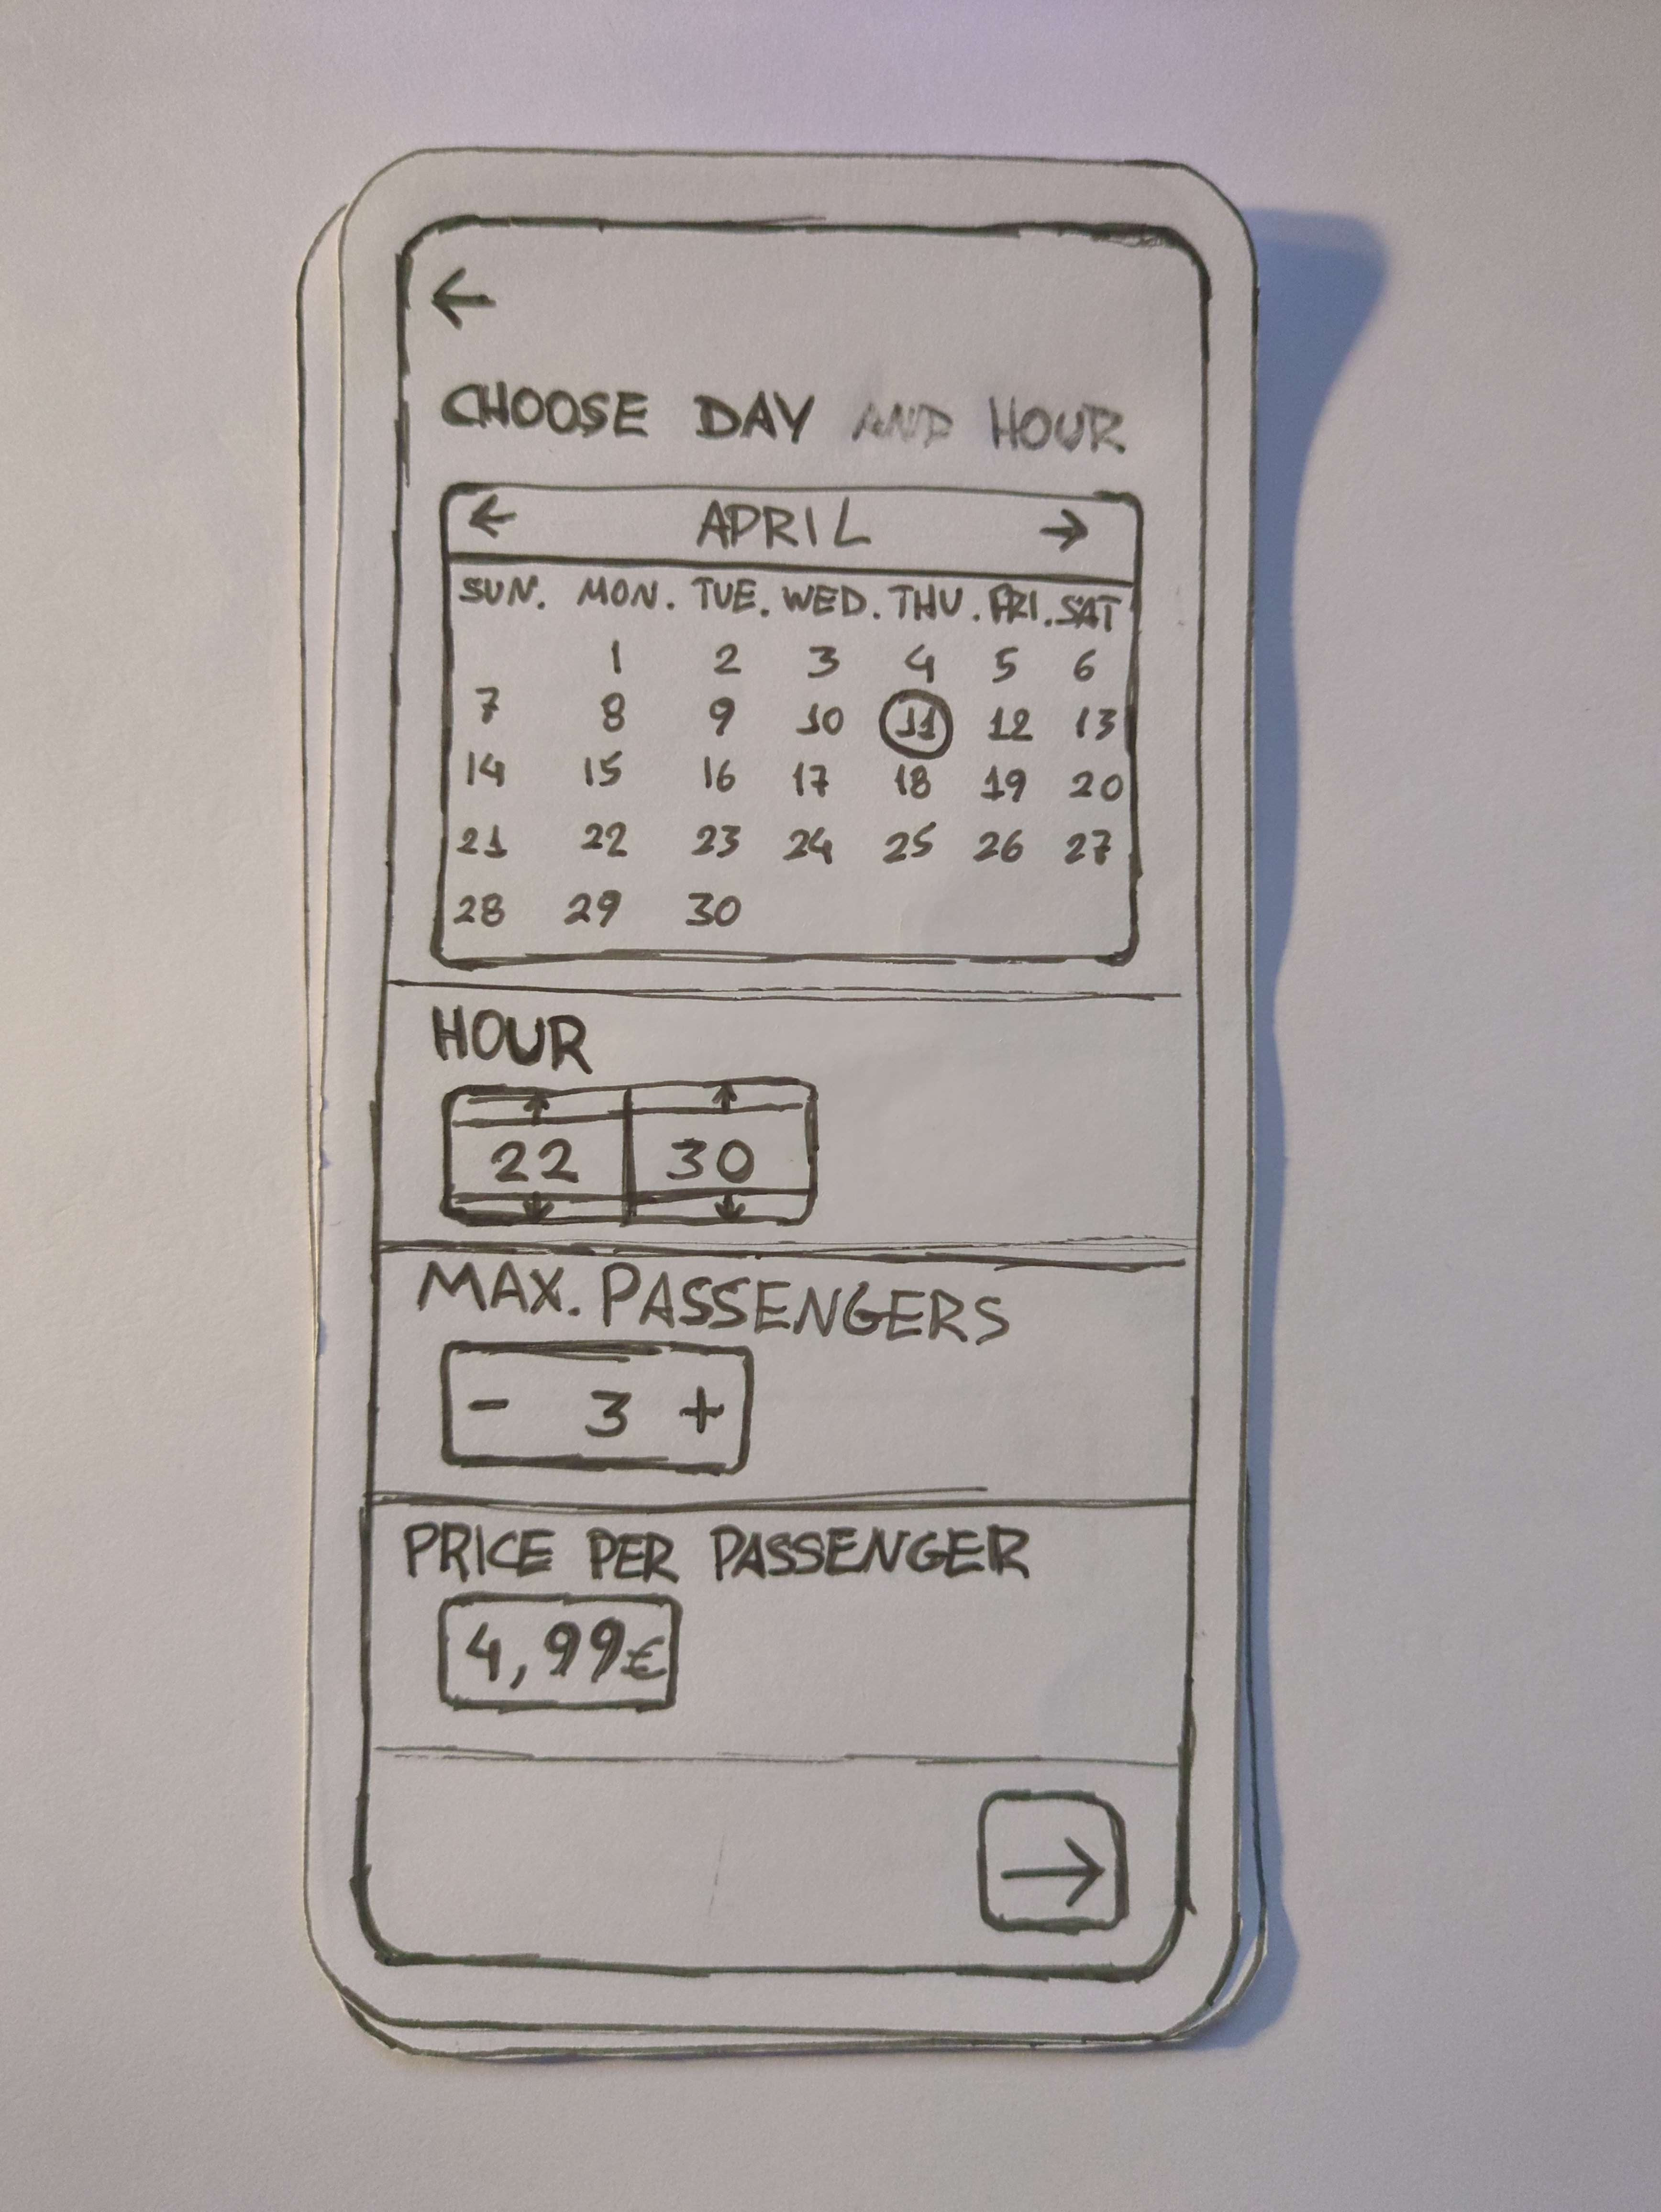 ←
CHOOSE DAY AND HOUR
← APRIL →
SUN. MON. TUE. WED. THU. FRI. SAT
1 2 3 4 5 6
7 8 9 10 11 12 13
14 15 16 17 18 19 20
21 22 23 24 25 26 27
28 29 30
HOUR
↑ ↑
22 30
↓ ↓
MAX. PASSENGERS
- 3 +
PRICE PER PASSENGER
4,99€
→